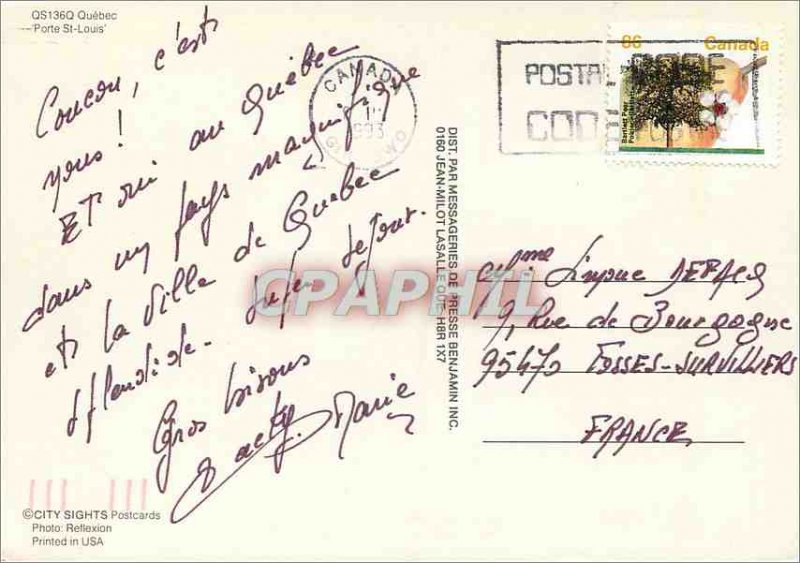 QS136Q Québec
'Porte St-Louis'
Coucou, c'est
nous!
ET oui au Québec
dans un pays magnifique
et la Ville de Quebec
splendide. Super séjour.
Gros bisous
Jacky. Marie
CANADA
1993
POSTAL CODE
CODE POSTAL
86 Canada
DIST. PAR MESSAGERIES DE PRESSE BENJAMIN INC.
0160 JEAN-MILOT LASALLE QUE. H8R 1X7
CPAPHIL
9, Rue de Bourgogne
95470 FOSSES-SURVILLIERS
FRANCE
©CITY SIGHTS Postcards
Photo: Reflexion
Printed in USA